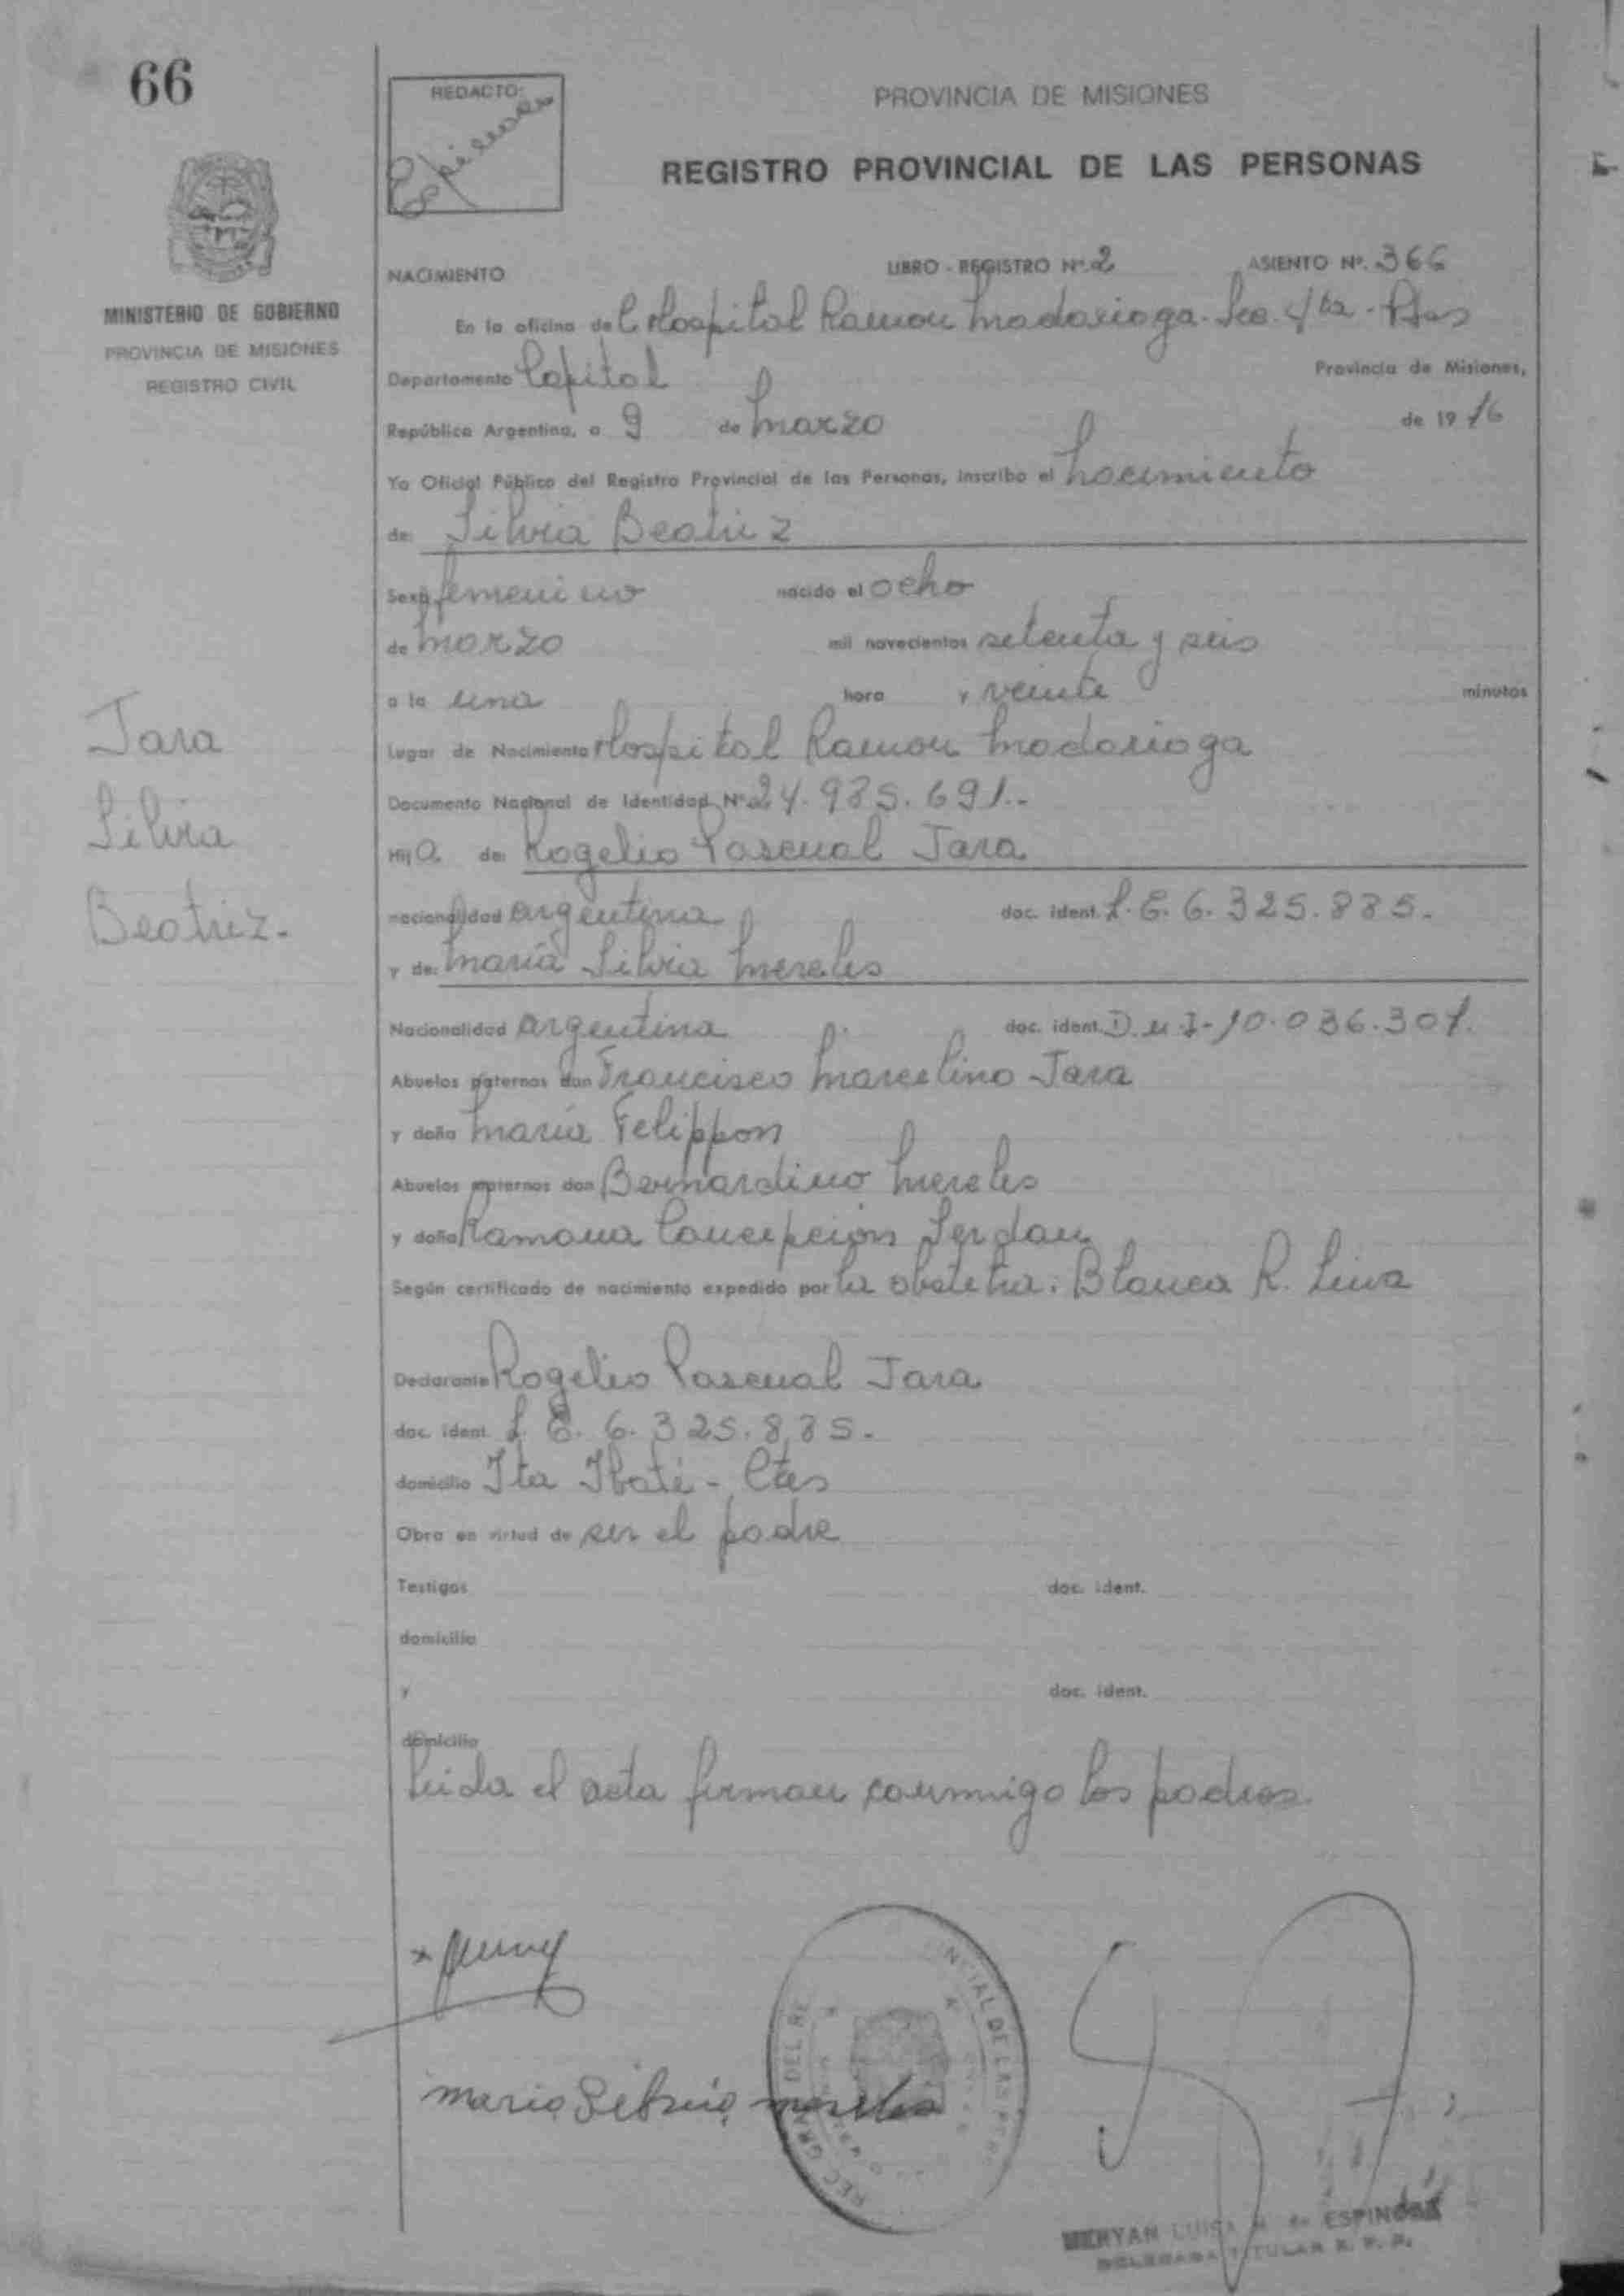 66
REDACTO:
Espinoza
PROVINCIA DE MISIONES
REGISTRO PROVINCIAL DE LAS PERSONAS
MINISTERIO DE GOBIERNO
PROVINCIA DE MISIONES
REGISTRO CIVIL
NACIMIENTO LIBRO - REGISTRO Nº. 2 ASIENTO Nº. 366
En la oficina del Hospital Ramon Madariaga. Sec. 4ta - Pdas
Departamento Capital Provincia de Misiones,
República Argentina, a 9 de Marzo de 1976
Yo Oficial Público del Registro Provincial de las Personas, inscribo el Nacimiento
de: Silvia Beatriz
Sexo femenino nacido el ocho
de Marzo mil novecientos setenta y seis
a la una hora y veinte minutos
Lugar de Nacimiento Hospital Ramon Madariaga
Documento Nacional de Identidad Nº 24.985.691.-
Hija de: Rogelio Pascual Jara
nacionalidad argentina doc. ident. L.E. 6.325.885.
y de: Maria Silvia Mereles
Nacionalidad argentina doc. ident. D.N.I - 10.036.301.
Abuelos paternos don Francisco Marcelino Jara
y doña Maria Felippon
Abuelos maternos don Bernardino Mereles
y doña Ramona Concepcion Serdan
Según certificado de nacimiento expedido por la obstetra: Blanca R. Leiva
Declarante Rogelio Pascual Jara
doc. ident. L.E. 6.325.885.
domicilio Ita Ibate - Ctes
Obra en virtud de ser el padre
Testigos doc. ident.
domicilio
y doc. ident.
domicilio
Leida el acta firman conmigo los padres.
Jara
Silvia
Beatriz.
Maria Silvia Mereles
MERYAN LUISA de ESPINOZA
DELEGADA TITULAR R. P. P.